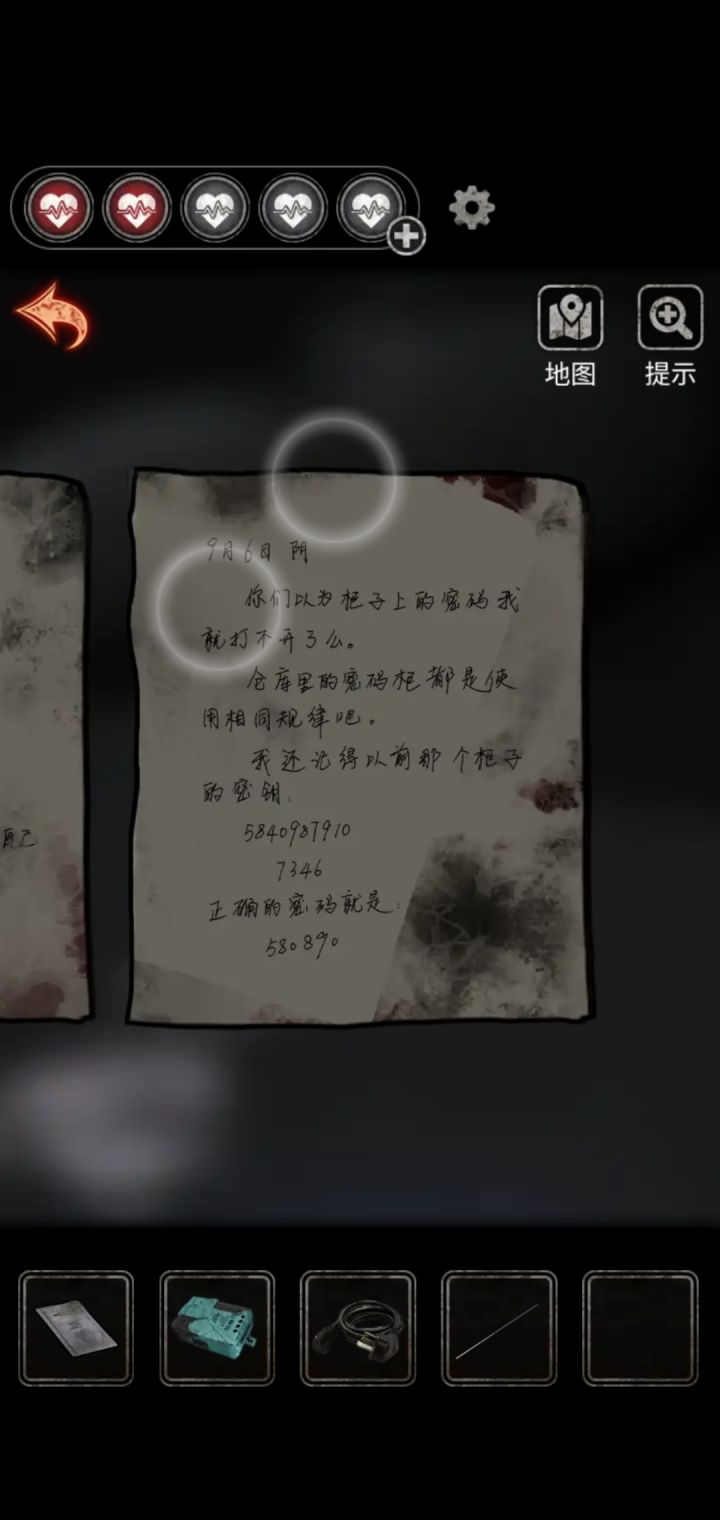 地图
提示
9月6日 阴
你们以为柜子上的密码我
就打不开了么。
仓库里的密码柜都是使
用相同规律吧。
我还记得以前那个柜子
的密钥:
5840987910
7346
正确的密码就是:
580890
自己